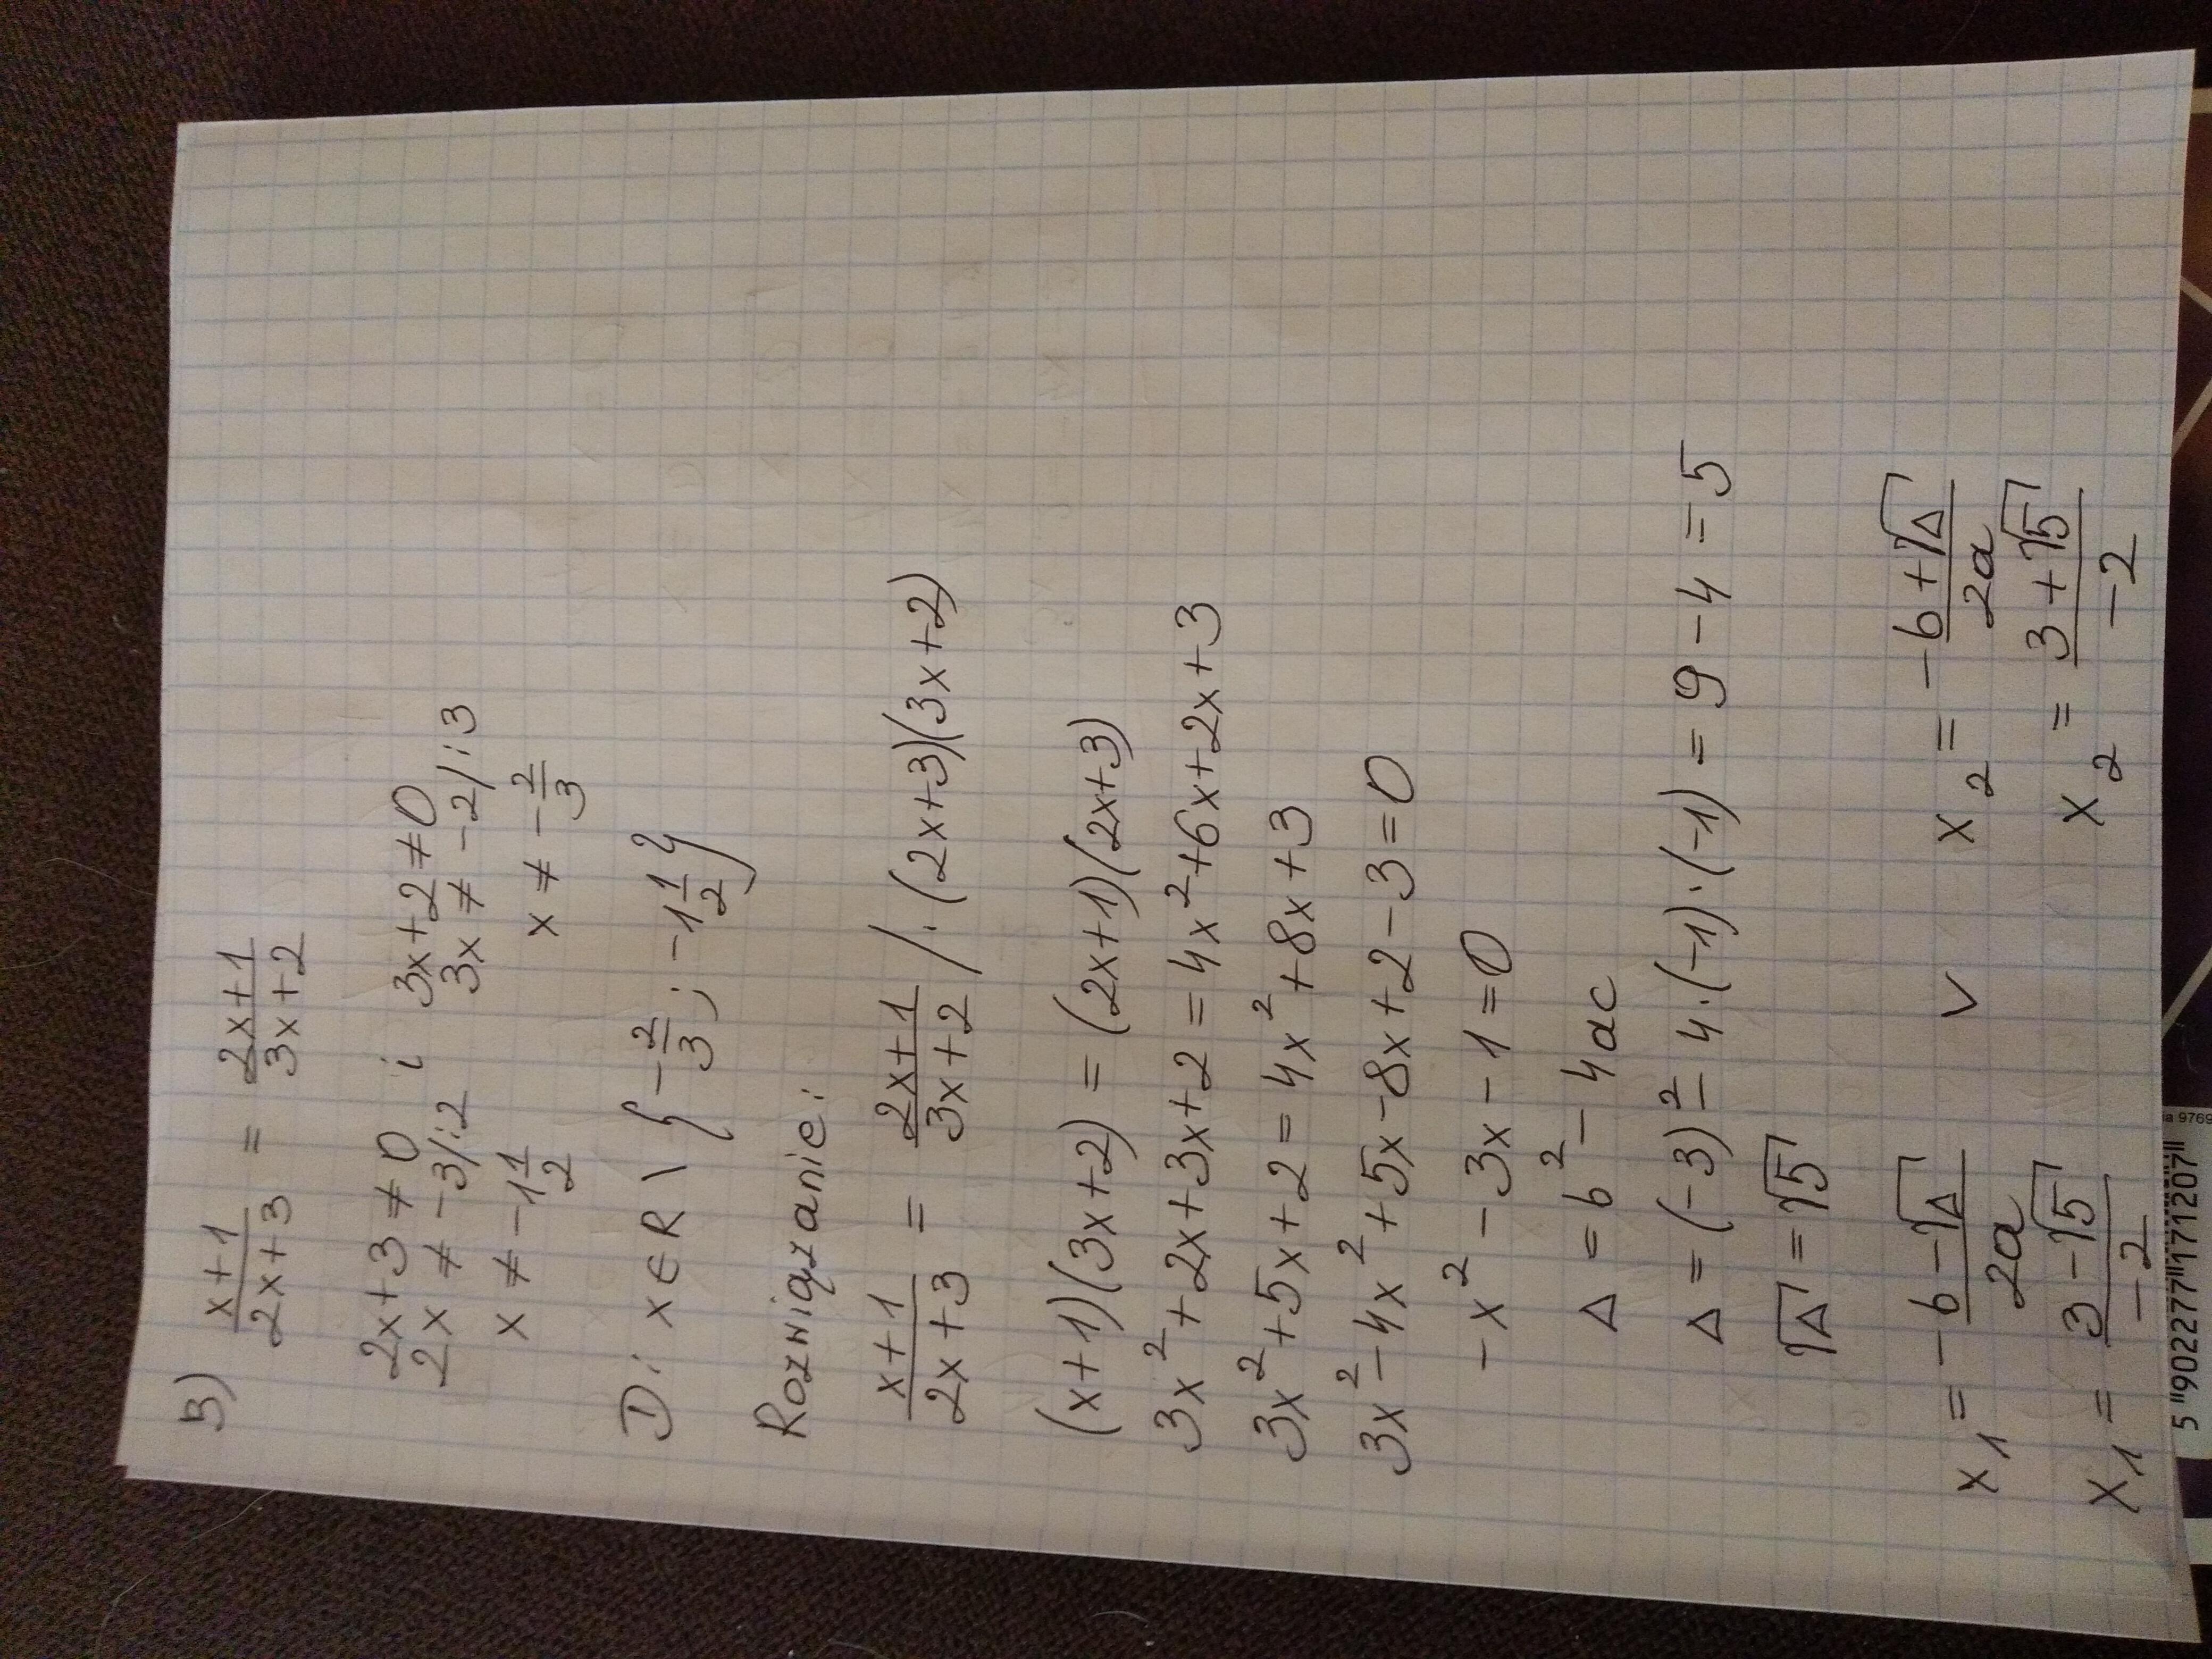 3) x+1/2x+3 = 2x+1/3x+2
2x+3≠0 i 3x+2≠0
2x≠-3/:2 3x≠-2/:3
x≠-1 1/2 x≠-2/3
D: x∈R\{-2/3; -1 1/2}
Rozwiązanie:
x+1/2x+3 = 2x+1/3x+2 /·(2x+3)(3x+2)
(x+1)(3x+2)=(2x+1)(2x+3)
3x²+2x+3x+2=4x²+6x+2x+3
3x²+5x+2=4x²+8x+3
3x²-4x²+5x-8x+2-3=0
-x²-3x-1=0
Δ=b²-4ac
Δ=(-3)²-4·(-1)·(-1)=9-4=5
√Δ=√5
x₁=-b-√Δ/2a ∨ x₂=-b+√Δ/2a
x₁=3-√5/-2 x₂=3+√5/-2
5"902277"171207"
9769